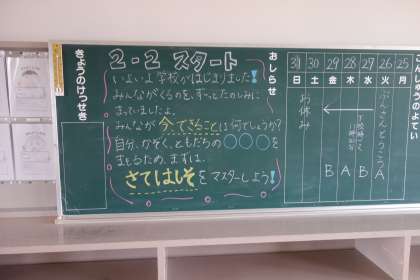 2-2 スタート
いよいよ学校がはじまりました!
みんながくるのを、ずっとたのしみに
まっていましたよ。
みんなが今、できることは何でしょうか?
自分、かぞく、ともだちの○○○を
まもるため、まずは、
さてはしそをマスターしよう!
おしらせ
きょうのけっせき
こんしゅうのよてい
25 月
26 火 ぶんさんとうこう A
27 水 B
28 木 A
29 金 B
30 土
31 日
お休み